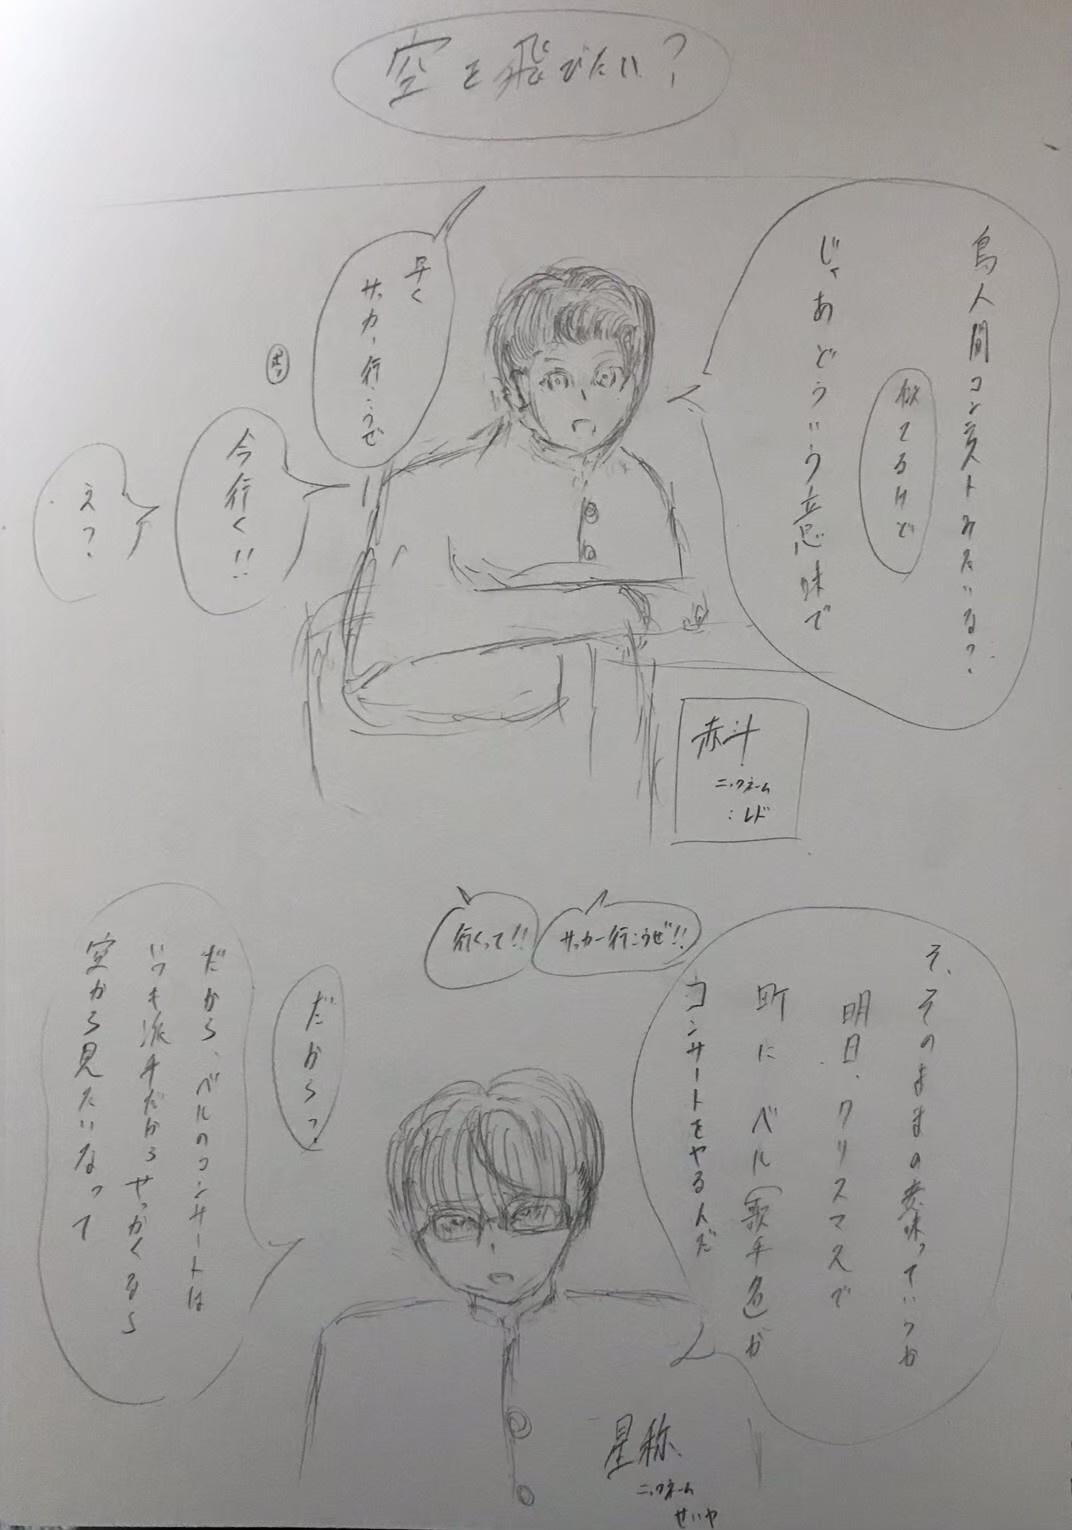 空を飛びたい？
鳥人間コンテストみたいな？
似てるけど
じゃあどういう意味で
早く
サッカー行こうぜ
今行く!!
えっ？
赤斗
ニックネーム
：レド
サッカー行こうぜ!!
行くって!!
そ、そのままの意味っていうか
明日、クリスマスで
町にベル(歌手名)が
コンサートをやるんだ
だからっ？
だから、ベルのコンサートは
いつも派手だからせっかくなら
空から見たいなって
星称
ニックネーム
せいや